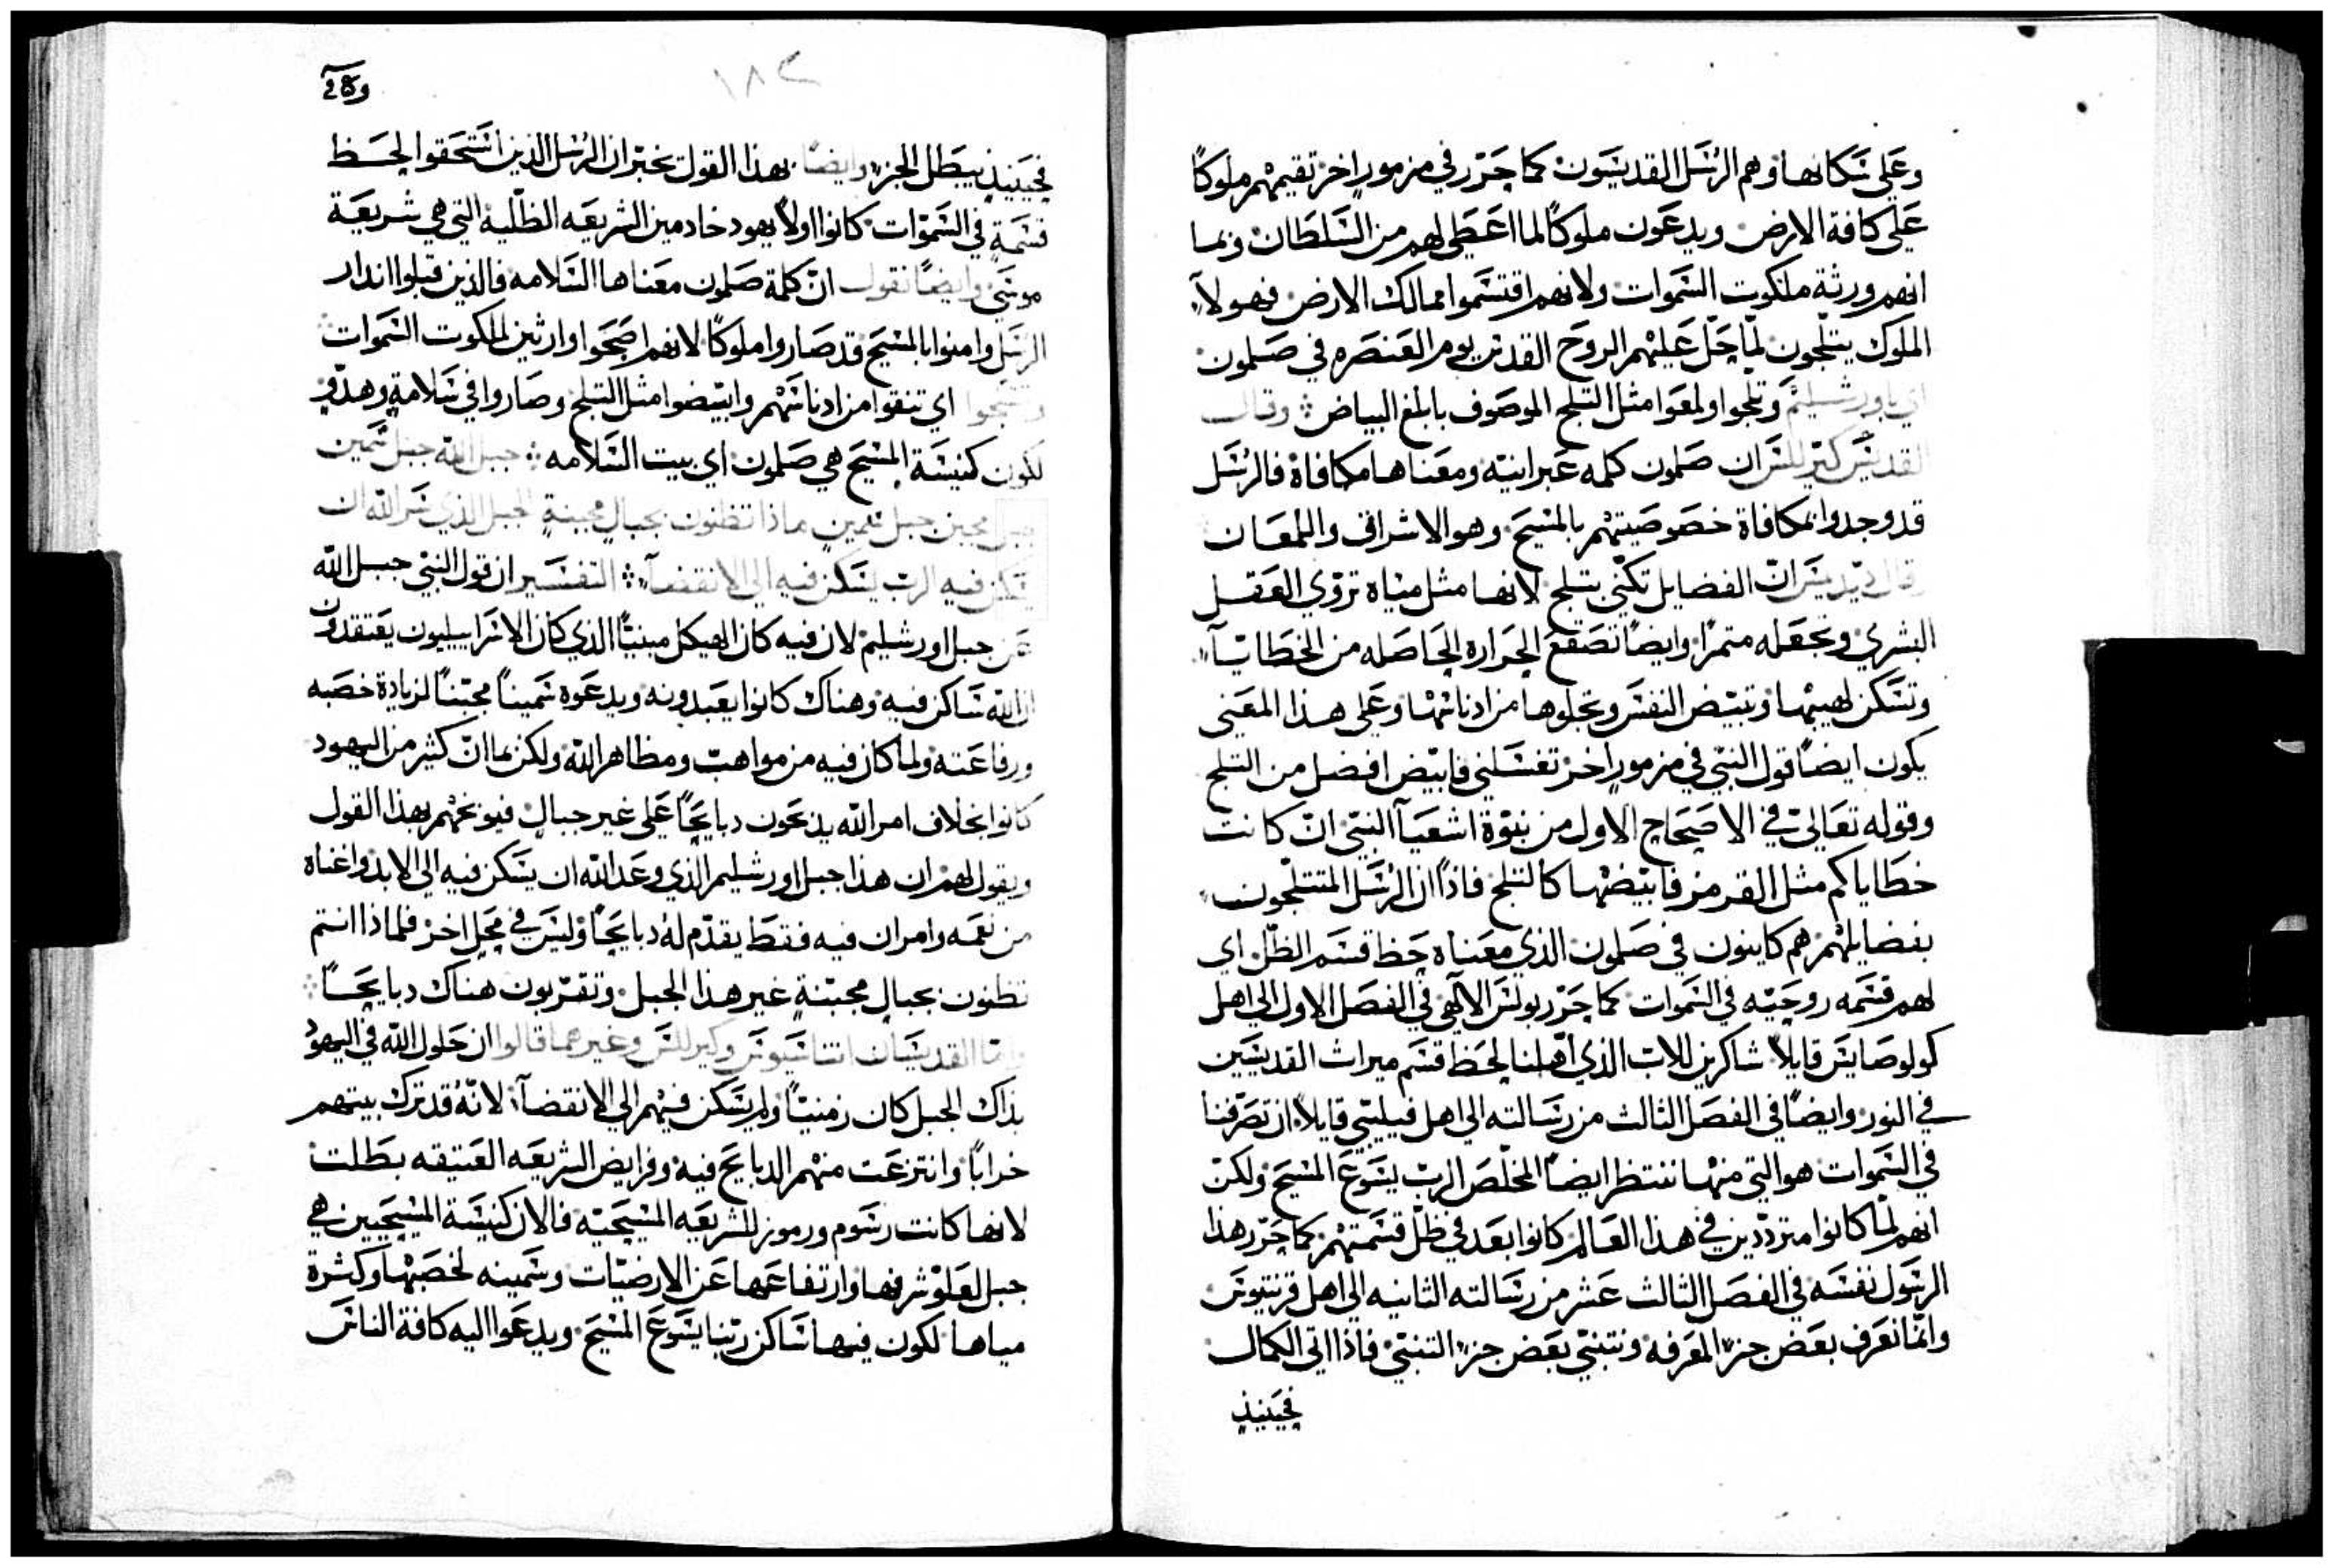 وعلى سكانها وهم الرسل القديسون كما حرر في مزمور اخر تقيمهم ملوكاً
على كافة الارض ويدعون ملوكاً لما اعطي لهم من السلطان وبما
انهم ورثة ملكوت السموات ولانهم اقتسموا ممالك الارض فهولاء
الملوك يتلجون لما حل عليهم الروح القدس يوم العنصره في صلمون
اي باورشليم وتلجوا ولمعوا مثل التلج الموصوف بابلغ البياض وقال
القديس كيرللس ان صلمون كلمه عبرانيه ومعناها مكافاة فالرسل
قد وجدوا مكافاة خصوصيتهم بالمسيح وهو الاشراق واللمعان
قال ديديمس ان الفضايل تكنى بتلج لانها مثل مياه تروي العقل
البشري وتجعله متمراً وايضاً تصقع الحراره الحاصله من الخطايا
وتسكن لهيبها وتبيض النفس وتجلوها من ادناسها وعلى هذا المعنى
يكون ايضاً قول النبي في مزمور اخر تغسلني فابيض افضل من التلج
وقوله تعالى في الاصحاح الاول من نبوة اشعيا النبي ان كانت
خطاياكم مثل القرمز فابيضها كالتلج فاذاً ان الرسل المتتلجون
بفضايلهم هم كاينون في صلمون الذي معناه حظ قسم الظل اي
لهم قسمه روحيه في السموات كما حرر بولس الالهي في الفصل الاول الى اهل
كولوصايس قايلاً شاكرين للاب الذي اهلنا لحظ قسم ميراث القديسين
في النور وايضاً في الفصل الثالث من رسالته الى اهل فيليبي قايلاً ان تصرفنا
في السموات هو التي منها ننتظر ايضاً المخلص الرب يسوع المسيح ولكن
انهم لما كانوا مترددين في هذا العالم كانوا بعد في ظل قسمتهم كما حرر هذا
الرسول نفسه في الفصل الثالث عشر من رسالته الثانيه الى اهل قرنتيوس
وانما نعرف بعض جزء المعرفه ونتنبي بعض جزء التنبي فاذا اتى الكمال
فحينيذ
١٨٢
فحينيذ يبطل الجزء وايضاً بهذا القول تخبر ان الرسل الذين استحقوا لحظ
قسمة في السموات كانوا اولاً يهود خادمين الشريعه الظلية التي هي شريعة
موسى وايضاً نقول ان كلمة صلمون معناها السلامه فالذين قبلوا اندار
الرسل وامنوا بالمسيح قد صاروا ملوكاً لانهم اضحوا وارثين لملكوت السموات
وتتلجوا اي تنقوا من ادناسهم وابيضوا مثل التلج وصاروا في سلامة وهدو
لكون كنيسة المسيح هي صلمون اي بيت السلامه جبل الله جبل سمين
جبل مجبن جبل سمين ماذا تظنون بجبال مجبنة الجبل الذي سر الله ان
يسكن فيه الرب يسكن فيه الى الانقضا التفسير ان قول النبي جبل الله
عن جبل اورشليم لان فيه كان الهيكل مبنياً الذي كان الاسراييليون يعتقدون
ان الله ساكن فيه وهناك كانوا يعبدونه ويدعوه سميناً مجبناً لزيادة خصبه
ورفاعته ولما كان فيه من مواهب ومظاهر الله ولكن بما ان كثير من اليهود
كانوا بخلاف امر الله يذبحون دبايحاً على غير جبال فيوبخهم بهذا القول
ويقول لهم ان هذا جبل اورشليم الذي وعد الله ان يسكن فيه الى الابد واغناه
من نعمه وامر ان فيه فقط يقدم له دبايحاً وليس في محل اخر فلماذا انتم
تظنون بجبال مجبنة غير هذا الجبل وتقربون هناك دبايحاً
واما القديسان اتناسيوس وكيرللس وغيرهما قالوا ان حلول الله في اليهود
بذاك الجبل كان زمنياً ولم يسكن فيهم الى الانقضا لانه قد ترك بيتهم
خراباً وانتزعت منهم الدبايح فيه وفرايض الشريعه العتيقه بطلت
لانها كانت رسوم ورموز للشريعه المسيحيه فالان كنيسة المسيحيين هي
جبل لعلو شرفها وارتفاعها عن الارضيات وسمينه لخصبها وكثرة
مياهها لكون فيها ساكن ربنا يسوع المسيح ويدعوا اليه كافة الناس